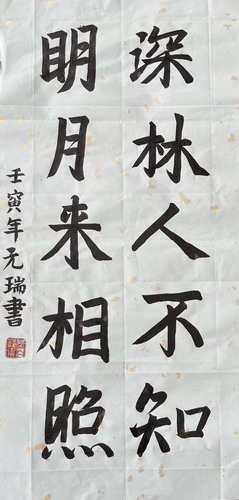 深林人不知
明月来相照
壬寅年元瑞書